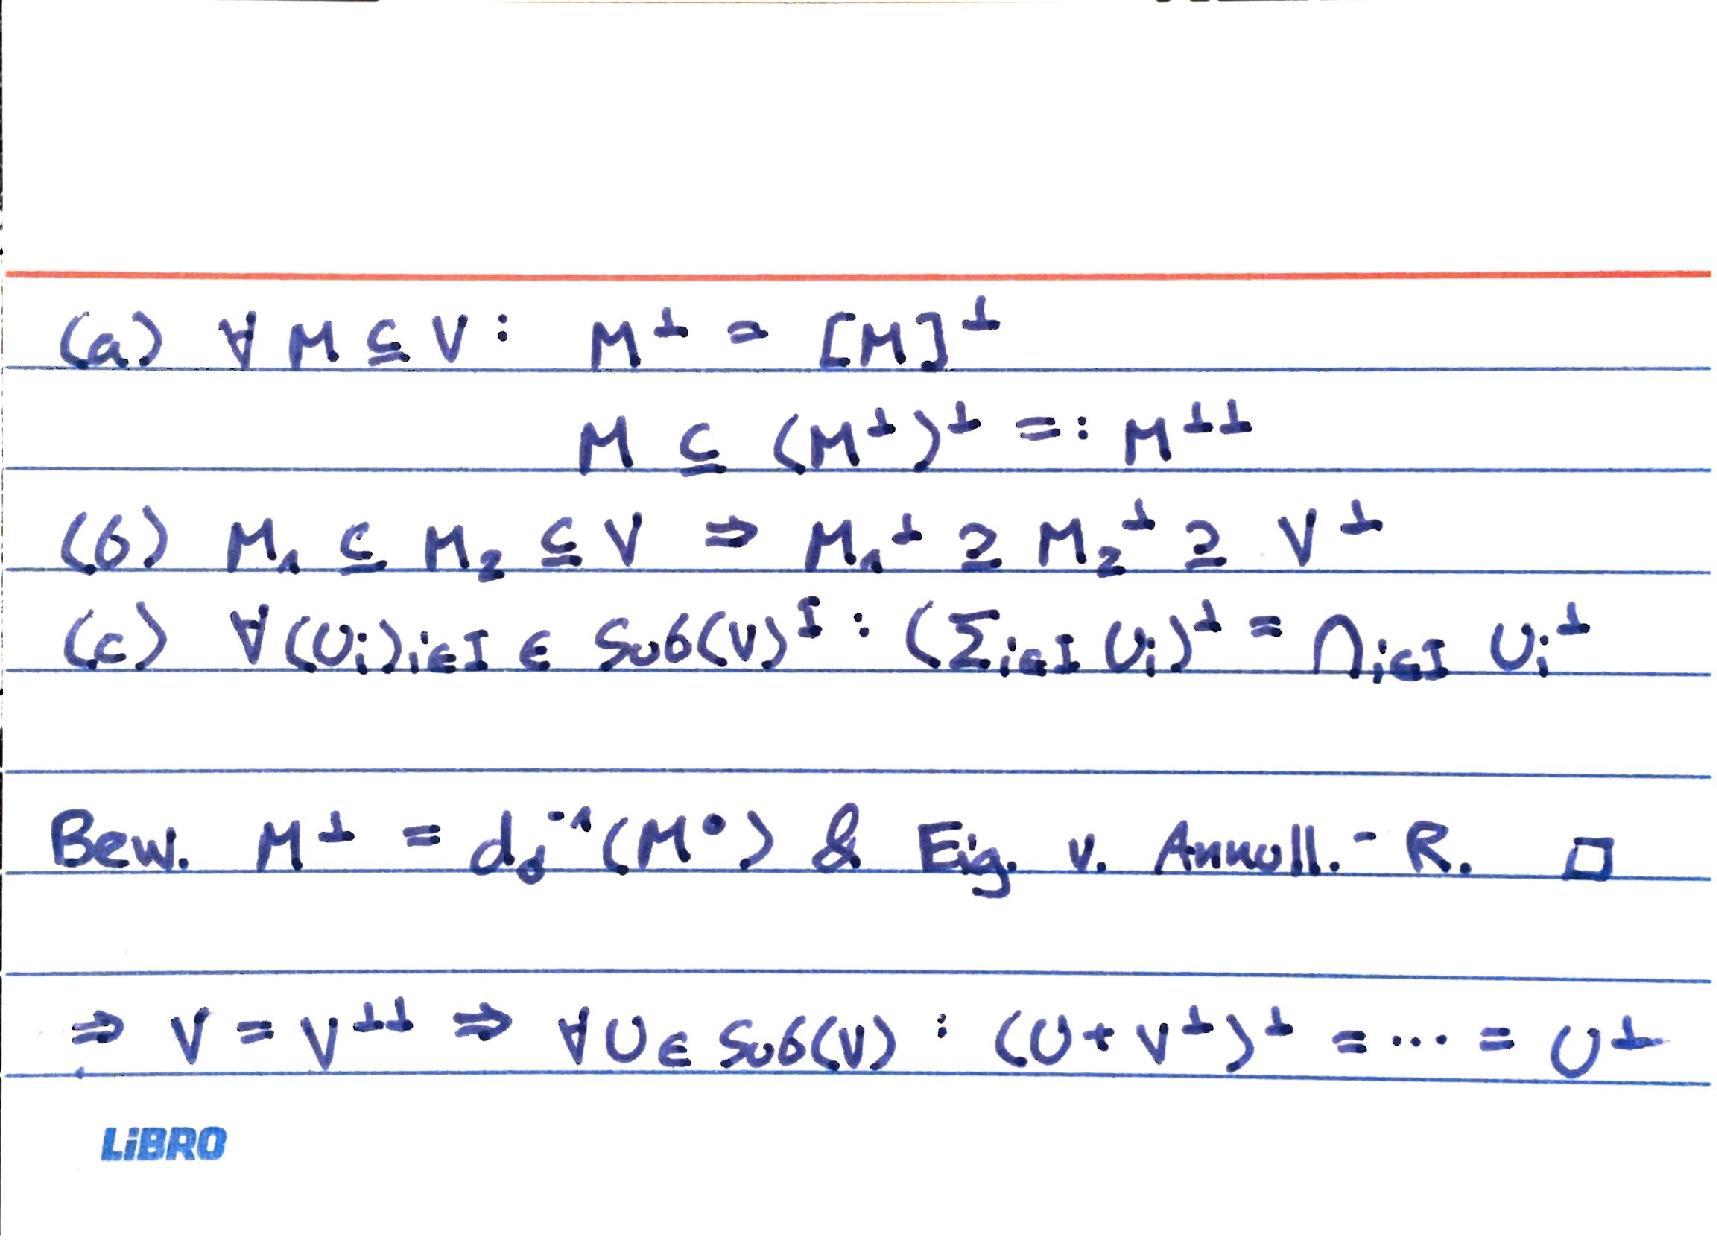 (a) ∀ M ⊆ V : M^⊥ = [M]^⊥
M ⊆ (M^⊥)^⊥ =: M^⊥⊥
(b) M₁ ⊆ M₂ ⊆ V ⇒ M₁^⊥ ⊇ M₂^⊥ ⊇ V^⊥
(c) ∀ (U_i)_{i∈I} ∈ Sub(V)^I : (Σ_{i∈I} U_i)^⊥ = ⋂_{i∈I} U_i^⊥
Bew. M^⊥ = d_σ^{-1}(M°) & Eig. v. Annull.-R. □
⇒ V = V^⊥⊥ ⇒ ∀ U ∈ Sub(V) : (U + V^⊥)^⊥ = ... = U^⊥
LiBRO